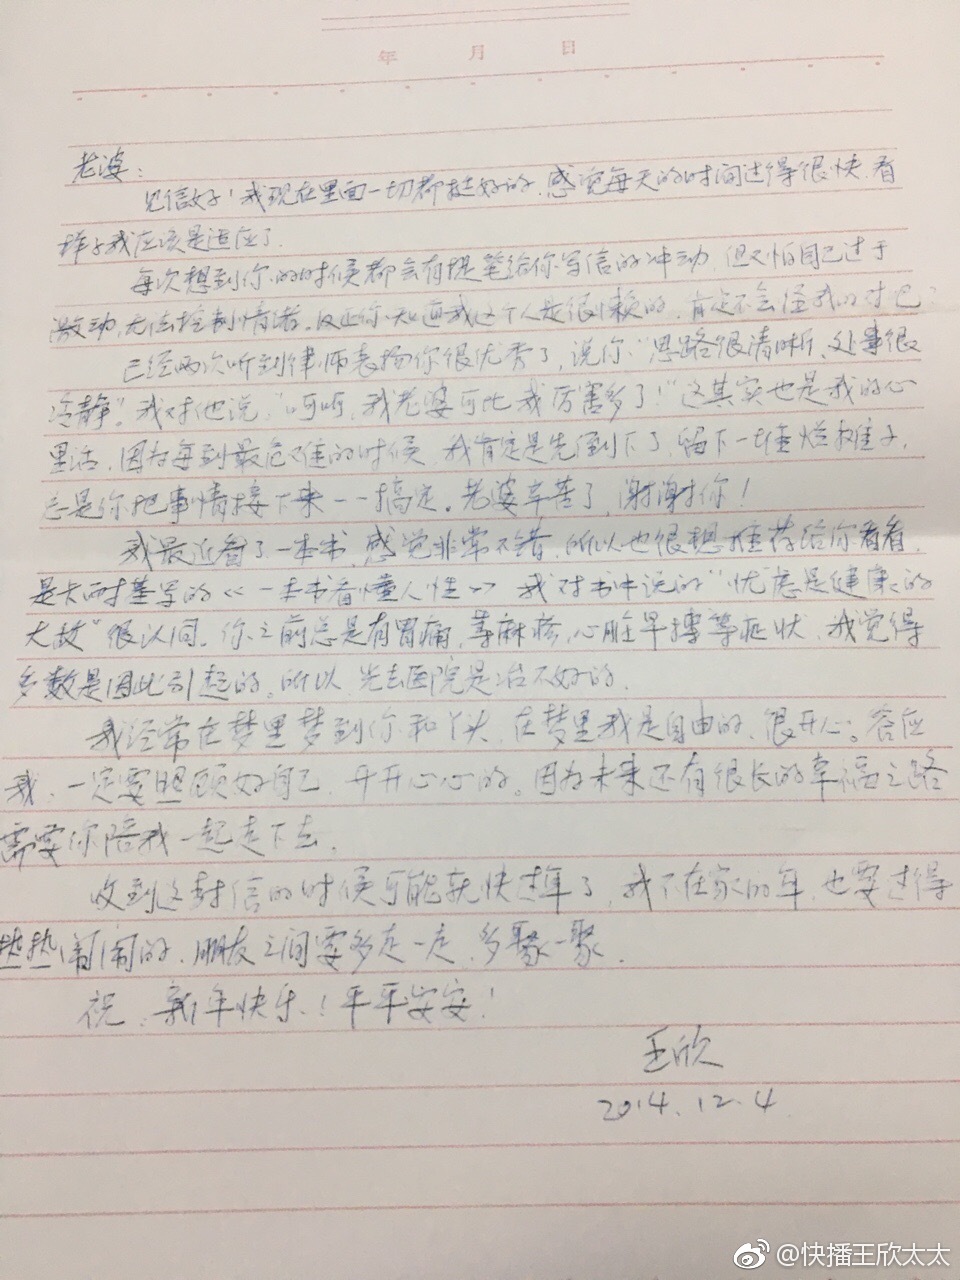 年 月 日
老婆：
见信好！我现在里面一切都挺好的，感觉每天的时间过得很快，看
样子我应该是适应了。
每次想到你的时候都会有提笔给你写信的冲动，但又怕自己过于
激动，无法控制情绪。反正你知道我这个人是很懒的，肯定不会怪我的对吧？
已经两次听到律师表扬你很优秀了，说你"思路很清晰、处事很
冷静"。我对他说，"呵呵，我老婆可比我厉害多了！"这其实也是我的心
里话，因为每到最危难的时候，我肯定是先倒下了，留下一堆烂摊子，
总是你把事情接下来一一搞定。老婆辛苦了，谢谢你！
我最近看了一本书，感觉非常不错，所以也很想推荐给你看看，
是卡耐基写的《一本书看懂人性》，我对书中说的"忧虑是健康的
大敌"很认同。你之前总是有胃痛，荨麻疹，心脏早搏等症状，我觉得
多数是因此引起的。所以，光去医院是治不好的。
我经常在梦里梦到你和丫头，在梦里我是自由的，很开心。答应
我，一定要照顾好自己，开开心心的。因为未来还有很长的幸福之路
需要你陪我一起走下去。
收到这封信的时候可能就快过年了，我不在家的年，也要过得
热热闹闹的，朋友之间要多走一走，多聚一聚。
祝：新年快乐！平平安安！
王欣
2014.12.4
@快播王欣太太